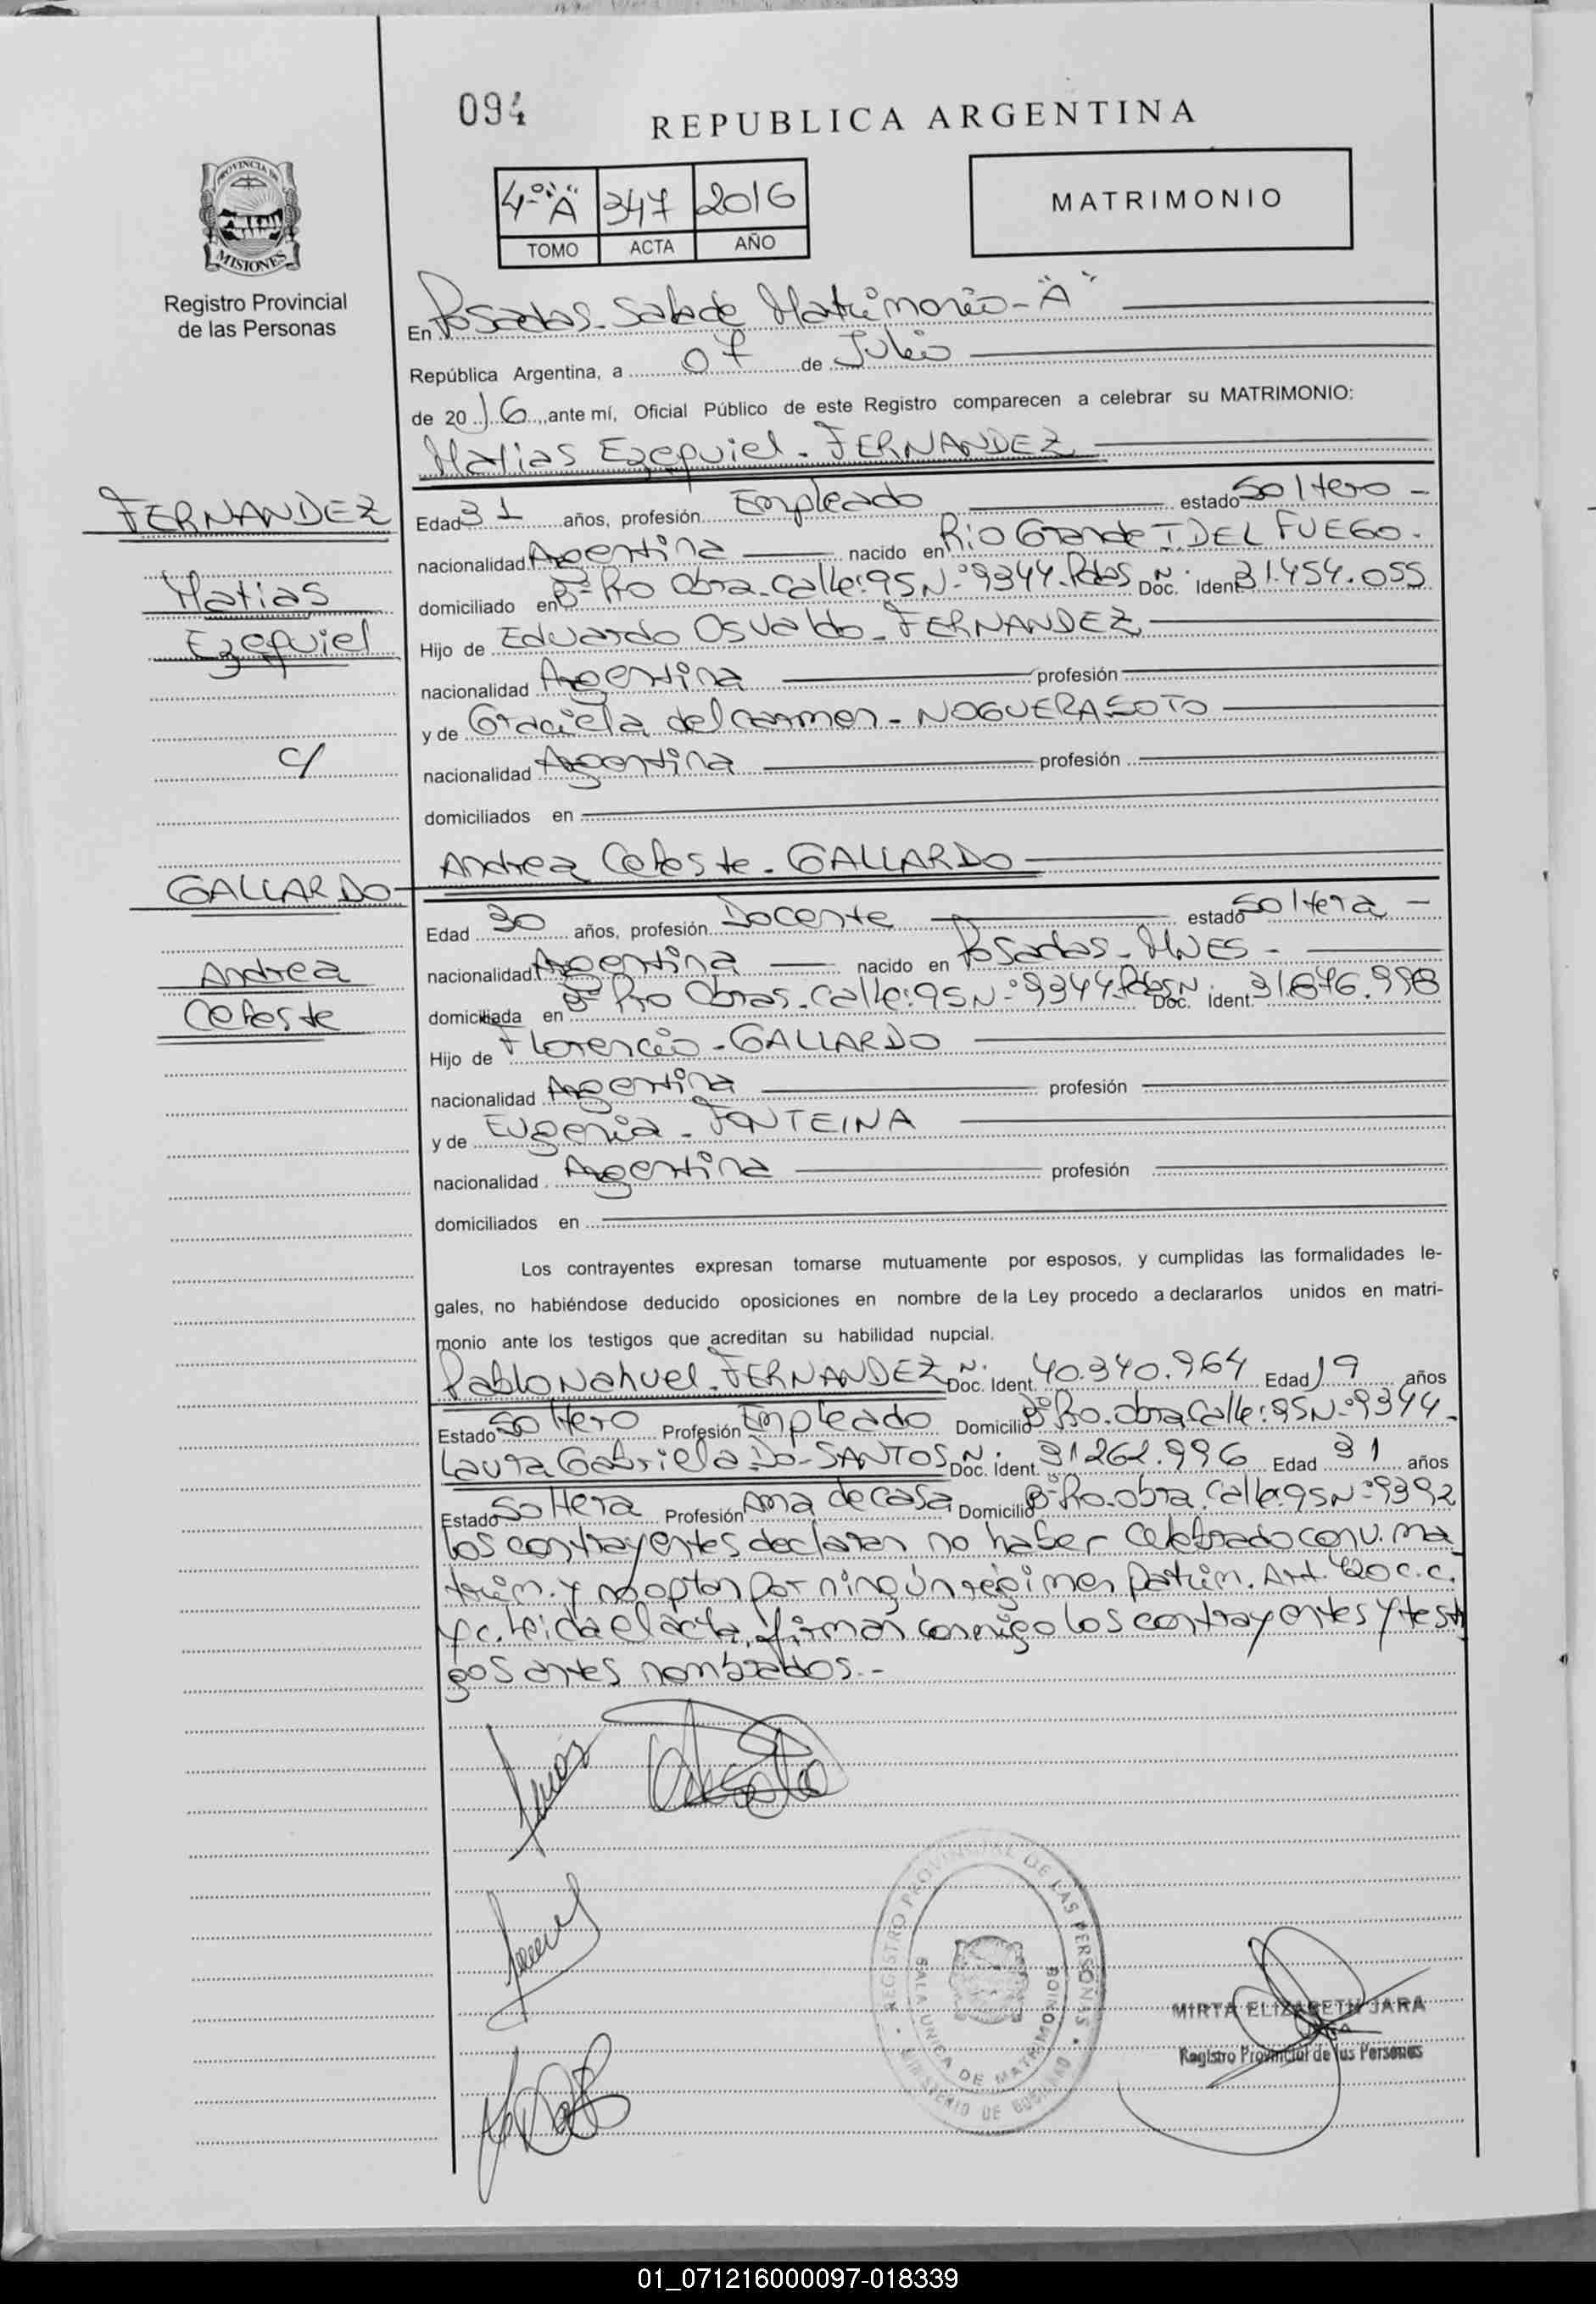 094
REPUBLICA ARGENTINA
PROVINCIA DE
MISIONES
Registro Provincial
de las Personas
4º "A" 347 2016
TOMO ACTA AÑO
MATRIMONIO
En Posadas-Sala de Matrimonio-"A"
República Argentina, a 07 de Julio
de 2016, ante mí, Oficial Público de este Registro comparecen a celebrar su MATRIMONIO:
Matias Ezequiel-FERNANDEZ
FERNANDEZ
Matias
Ezequiel
c/
GALLARDO
Andrea
Celeste
Edad 31 años, profesión Empleado estado Soltero-
nacionalidad Argentina nacido en Rio Grande T. DEL FUEGO.
domiciliado en Bº Pro Obra-Calle:95 Nº 9344-Pdas Doc. Ident. Nº: 31.454.055
Hijo de Eduardo Osvaldo-FERNANDEZ
nacionalidad Argentina profesión
y de Graciela del Carmen-NOGUERA SOTO
nacionalidad Argentina profesión
domiciliados en
Andrea Celeste-GALLARDO
Edad 30 años, profesión Docente estado Soltera-
nacionalidad Argentina nacido en Posadas-MNES-
domiciliada en Bº Pro Obras-Calle:95 Nº 9344-Pdas Doc. Ident. Nº:
Hijo de Florencio-GALLARDO
nacionalidad Argentina profesión
y de Eugenia-FONTEINA
nacionalidad Argentina profesión
domiciliados en
Los contrayentes expresan tomarse mutuamente por esposos, y cumplidas las formalidades le-
gales, no habiéndose deducido oposiciones en nombre de la Ley procedo a declararlos unidos en matri-
monio ante los testigos que acreditan su habilidad nupcial.
Pablo Nahuel-FERNANDEZ Doc. Ident. Nº: 40.340.964 Edad 19 años
Estado Soltero Profesión Empleado Domicilio Bº Pro-obra Calle:95 Nº 9344-
Laura Gabriela Do-SANTOS Doc. Ident. Nº: 31.262.996 Edad 31 años
Estado Soltera Profesión Ama de casa Domicilio Bº Pro-obra Calle 95 Nº 9392
los contrayentes declaran no haber celebrado conv. ma
trim. y no optan por ningún régimen patrim. Art. 420 c.c.
y c. leida el acta, firman conmigo los contrayentes y testi
gos antes nombrados.-
REGISTRO PROVINCIAL DE LAS PERSONAS
SALA UNICA DE MATRIMONIOS
MINISTERIO DE GOBIERNO
MIRTA ELIZABETH JARA
Registro Provincial de las Personas
01_071216000097-018339